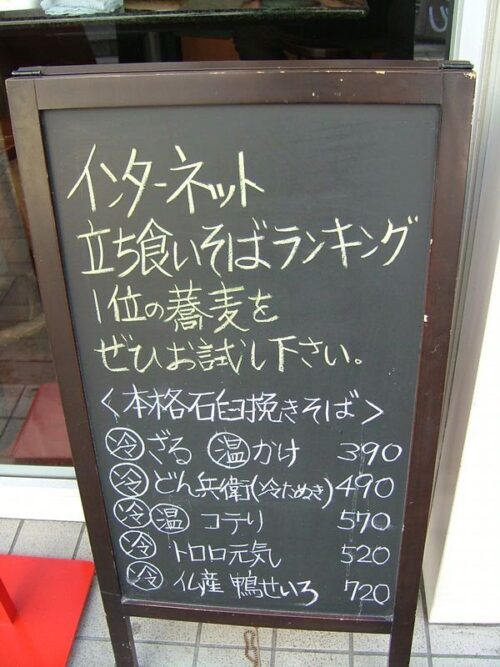 インターネット
立ち食いそばランキング
1位の蕎麦を
ぜひお試し下さい。
<本格石臼挽きそば>
冷 ざる 温 かけ 390
冷 どん兵衛(冷たぬき) 490
冷 温 コテリ 570
冷 トロロ元気 520
冷 仏産 鴨せいろ 720